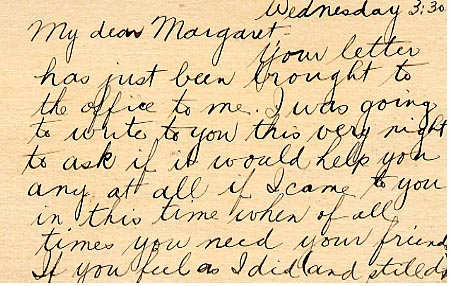 Wednesday 3:30
My dear Margaret-
Your letter
has just been brought to
the office to me. I was going
to write to you this very night
to ask if it would help you
any at all if I came to you
in this time when of all
times you need your friend
If you feel as I did (and still do